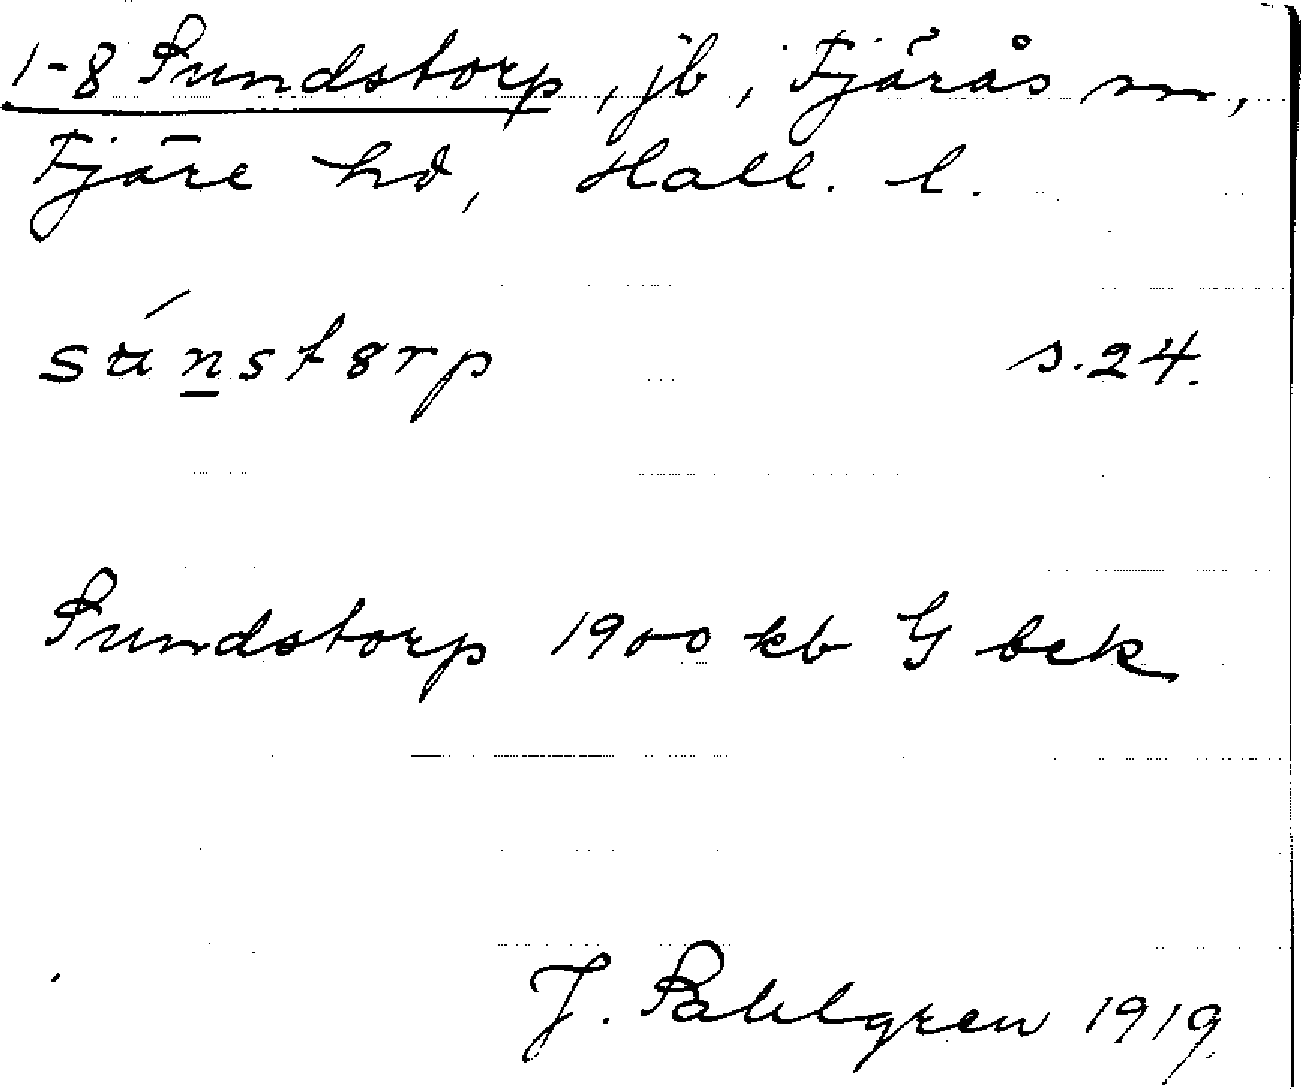 1-8 Sundstorp, jb, Fjärås sn,
Fjäre hd, Hall. l.
súnstorp s. 24.
Sundstorp 1900 kb G bek
J. Sahlgren 1919